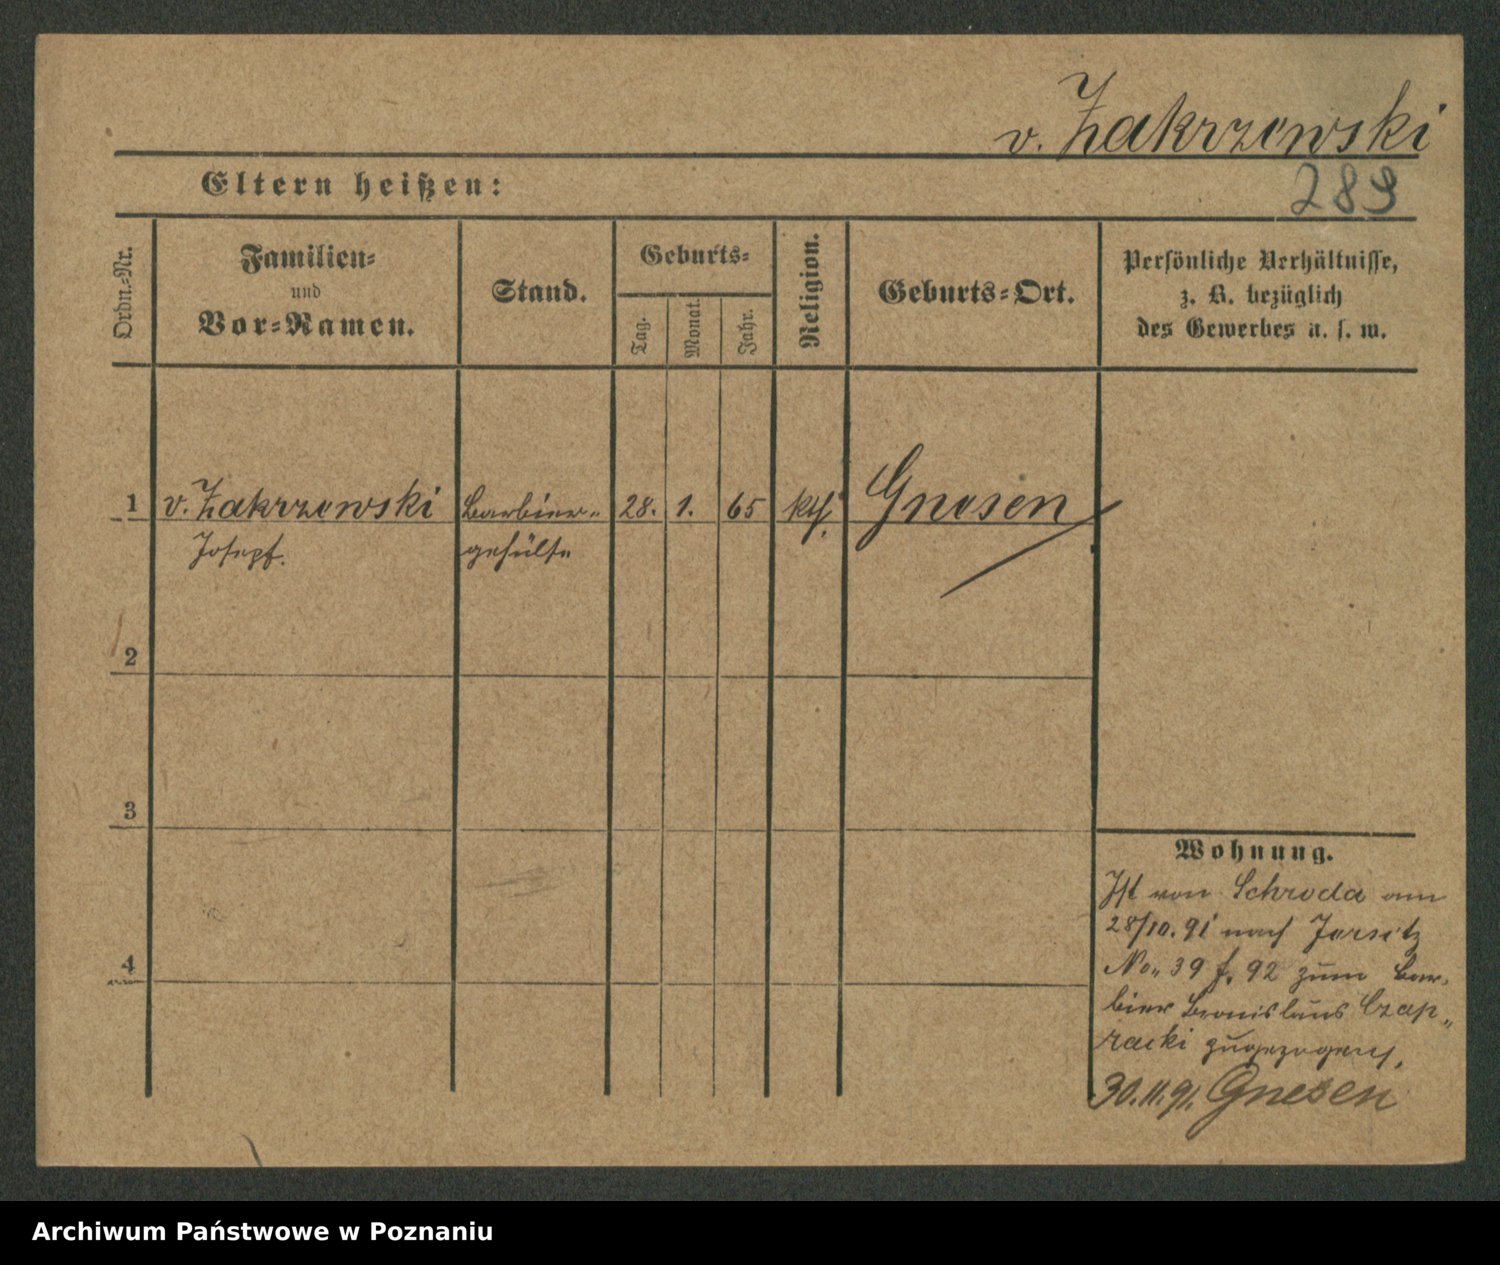 v. Zakrzewski
Eltern heißen:
289
Ordn.-Nr.
Familien-
und
Vor-Namen.
Stand.
Geburts-
Tag.
Monat.
Jahr.
Religion.
Geburts-Ort.
Persönliche Verhältnisse,
z. B. bezüglich
des Gewerbes u. s. w.
1 v. Zakrzewski Barbier- 28. 1. 65 kth. Gnesen
Josef. gehülfe
2
3
4
Wohnung.
Ist von Schroda am
28/10. 91 nach Jersitz
No. 39 f. 92 zum Bar-
bier Bronislaus Czap-
racki zugezogen.
30.11.91. Gnesen
Archiwum Państwowe w Poznaniu